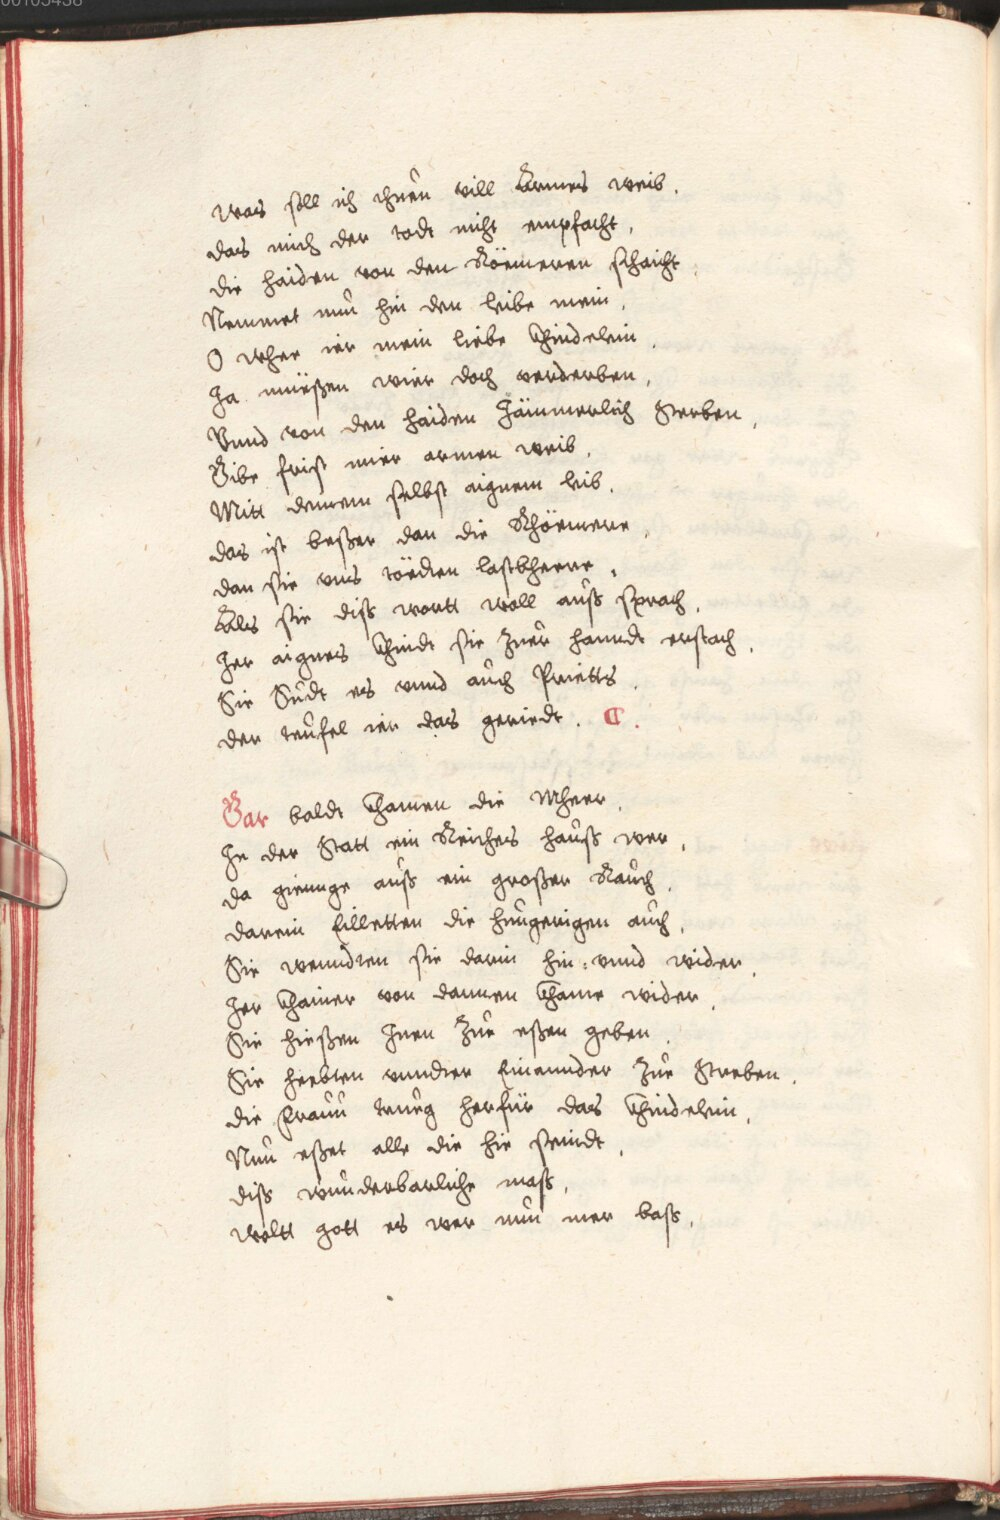 Was soll ich thuen vill Armes weib.
das mich der todt nicht empfacht,
die haiden von den Röemeren schaicht.
Nemmet nuu hin den leibe mein.
O wher ier mein liebe khindelein.
Ja müeßen wier doch verderben,
Vnnd von den haiden Jämmerlich Sterben,
Gibe frist mier armen weib,
Mitt deinem selbst aignem leib.
das ist beßer dan die Rhöemere,
dan sie vns tördten lastbherre,
Als sie diß wortt woll auß sprach,
Jer aignes khindt sie Zuer hanndt erstach,
Sie Sudt es vnnd auch Prietts.
der teufel ier das geriedt.
Gar baldt khamen die Mheer,
In der Statt ein Reiches hauß wer,
da gienge auß ein großer Rauch,
darein Eilletten die hungerigen auch,
Sie wenndten sie darin hin: vnnd wider
Jer khainer von dannen khame wider,
Sie hießen Inen Zue eßen geben.
Sie heebten vnnder Einannder Zue Streben,
die frauu trueg herfür das khindelein,
Nuu eßet alle die hie seindt,
diß wunderbarliche maß,
woltt gott es wer nun mer baß,